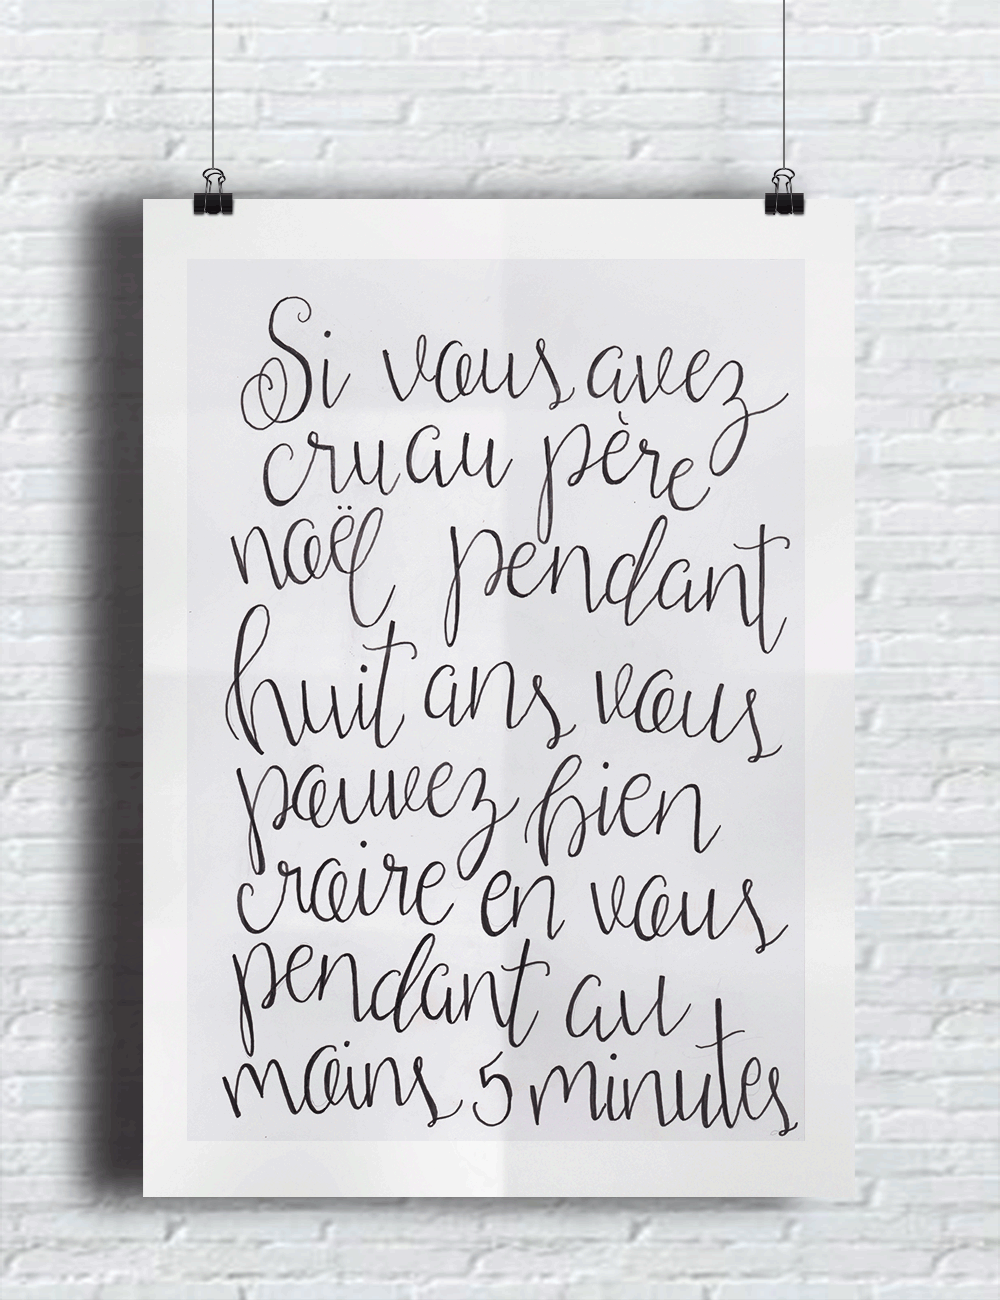 Si vous avez
cru au père
noël pendant
huit ans vous
pouvez bien
croire en vous
pendant au
moins 5 minutes